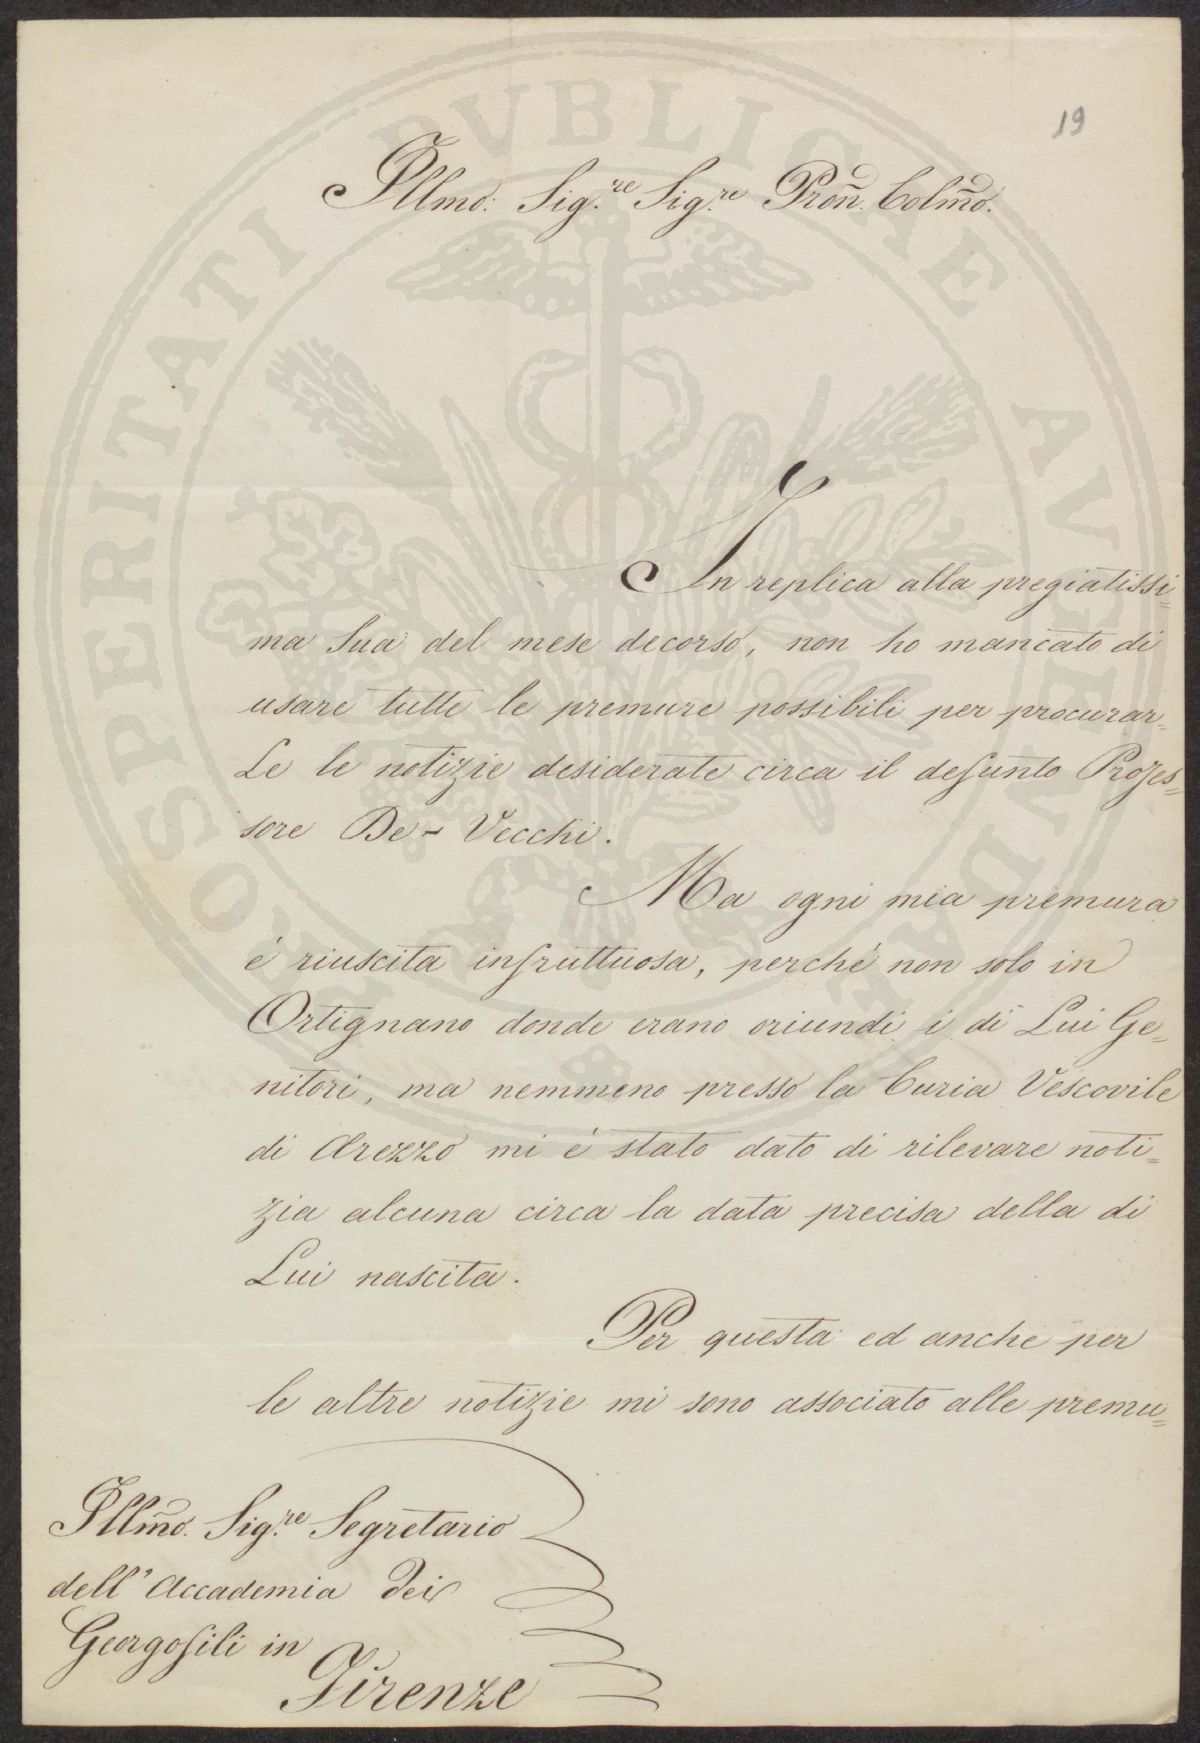 19
Illmo: Sig.re Sig.re Pron. Colmo.
In replica alla pregiatissi=
ma Sua del mese decorso, non ho mancato di
usare tutte le premure possibili per procurar=
Le le notizie desiderate circa il defunto Profes=
sore De-Vecchi.
Ma ogni mia premura
é riuscita infruttuosa, perché non solo in
Ortignano donde erano oriundi i di Lui Ge=
nitori, ma nemmeno presso la Curia Vescovile
di Arezzo mi é stato dato di rilevare noti=
zia alcuna circa la data precisa della di
Lui nascita.
Per questa ed anche per
le altre notizie mi sono associato alle premu=
Illmo. Sig.re Segretario
dell'Accademia dei
Georgofili in
Firenze
PROSPERITATI PVBLICAE AVGENDAE